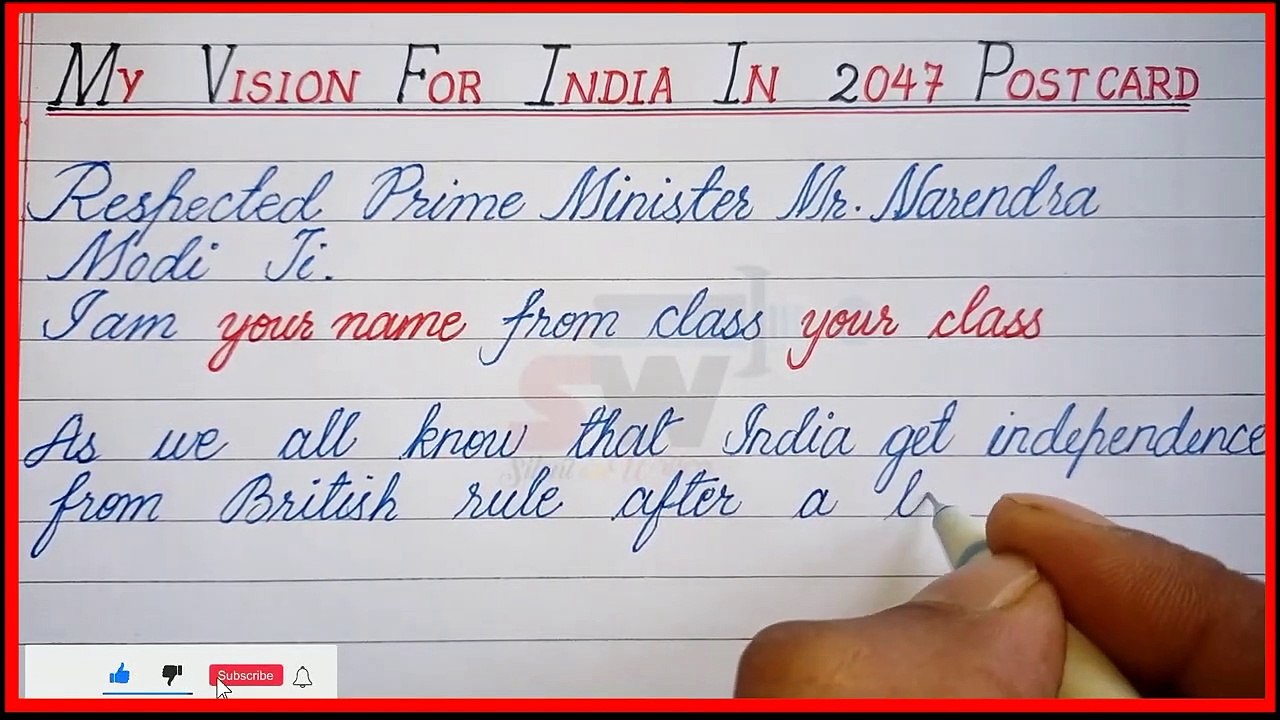 My Vision For India In 2047 Postcard
Respected Prime Minister Mr. Narendra
Modi Ji.
I am your name from class your class
As we all know that India get independence
from British rule after a
SW
Subscribe